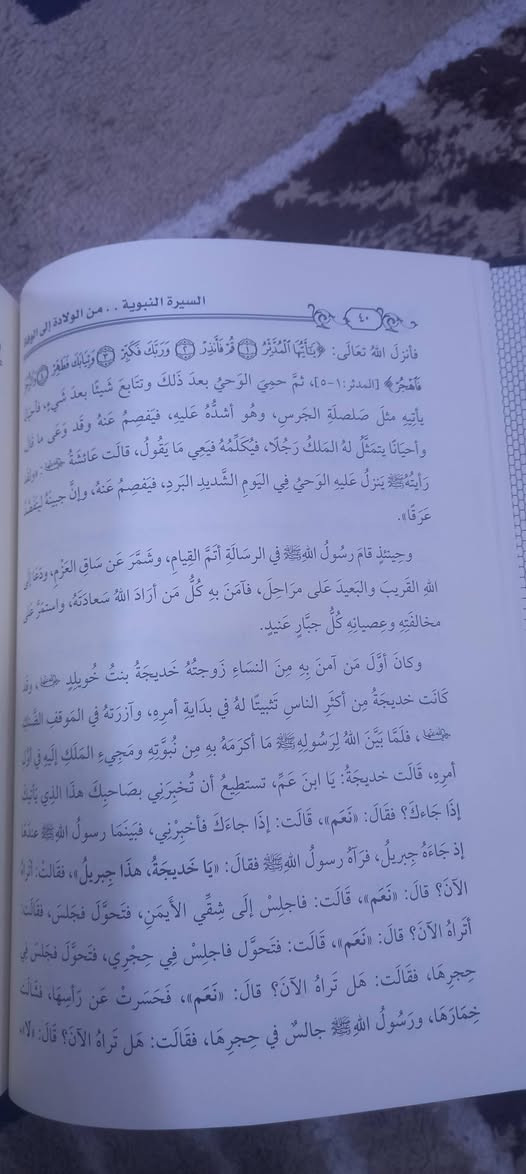 السيرة النبوية . . من الولادة إلى الوفاة
٤٠
فأنزلَ اللهُ تعَالى: ﴿يَٰٓأَيُّهَا ٱلْمُدَّثِّرُ ۝١ قُمْ فَأَنذِرْ ۝٢ وَرَبَّكَ فَكَبِّرْ ۝٣ وَثِيَابَكَ فَطَهِّرْ ۝٤
فَٱهْجُرْ﴾ [المدثر: ١-٥]، ثمَّ حمِيَ الوَحيُ بعدَ ذَلكَ وتتَابعَ شَيئًا بعدَ شَيءٍ، فأحيَانًا
يأتِيهِ مثلَ صَلصلَةِ الجَرسِ، وهُو أشدُّهُ عَليهِ، فيَفصِمُ عَنهُ وقَد وَعَى ما قالَ
وأحيَانًا يتمَثَّلُ لهُ المَلَكُ رَجُلًا، فيُكلِّمُهُ فيَعِي مَا يَقُولُ، قالَت عَائشَةُ: «ولقَد
رَأيتُهُ ﷺ يَنزلُ عَليهِ الوَحيُ فِي اليَومِ الشَّديدِ البَردِ، فيَفصِمُ عَنهُ، وإنَّ جبِينَهُ ليَتفَصَّدُ
عَرَقًا».
وحِينئذٍ قامَ رسُولُ اللهِ ﷺ في الرسَالَةِ أتَمَّ القِيامِ، وشَمَّرَ عَن سَاقِ العَزْمِ، ودَعَا إلَى
اللهِ القَريبَ والبَعيدَ عَلى مرَاحِلَ، فآمَنَ بِهِ كُلُّ مَن أرَادَ اللهُ سَعادَتَهُ، واستمَرَّ علَى
مخالفَتِهِ وعِصيانِهِ كُلُّ جبَّارٍ عَنيدٍ.
وكانَ أوَّلَ مَن آمنَ بِهِ مِنَ النسَاءِ زَوجتُهُ خَديجَةُ بنتُ خُويلِدٍ، وقَد
كانَت خَديجَةُ مِن أكثَرِ الناسِ تَثبِيتًا لهُ في بدَايةِ أمرِهِ، وآزرَتهُ في المَوقفِ
، فلَمَّا بيَّنَ اللهُ لِرَسُولِهِ ﷺ مَا أكرَمَهُ بهِ مِن نُبوَّتِهِ ومَجِيءِ المَلَكِ إليهِ في أوَّلِ
أمرِهِ، قالَت خَديجَةُ: يَا ابنَ عَمِّ، تستَطِيعُ أن تُخبِرَنِي بصَاحبِكَ هذَا الذِي يَأتِيكَ
إذَا جَاءكَ؟ فقَالَ: «نَعَم»، قَالَت: إذَا جاءَكَ فأخبِرْنِي، فبَينَمَا رسولُ اللهِ ﷺ عندَهَا
إذ جَاءَهُ جِبرِيلُ، فرَآهُ رسُولُ اللهِ ﷺ فقالَ: «يَا خَديجَةُ، هَذَا جِبرِيلُ»، فقَالَتْ: أتَرَاهُ
الآنَ؟ قالَ: «نَعَم»، قَالَت: فاجلِسْ إلَى شِقِّي الأيمَنِ، فتَحوَّلَ فجَلسَ، فقَالَت:
أترَاهُ الآنَ؟ قالَ: «نَعَم»، قَالَت: فتَحوَّل فاجلِسْ فِي حِجْرِي، فتَحوَّلَ فجَلسَ فِي
حِجرِهَا، فقَالَت: هَل تَراهُ الآنَ؟ قالَ: «نَعَم»، فَحَسَرتْ عَن رَأسِهَا، فشَالَت
خِمَارَهَا، ورَسُولُ اللهِ ﷺ جالسٌ في حِجرِهَا، فقَالَت: هَل تَراهُ الآنَ؟ قَالَ: «لَا»